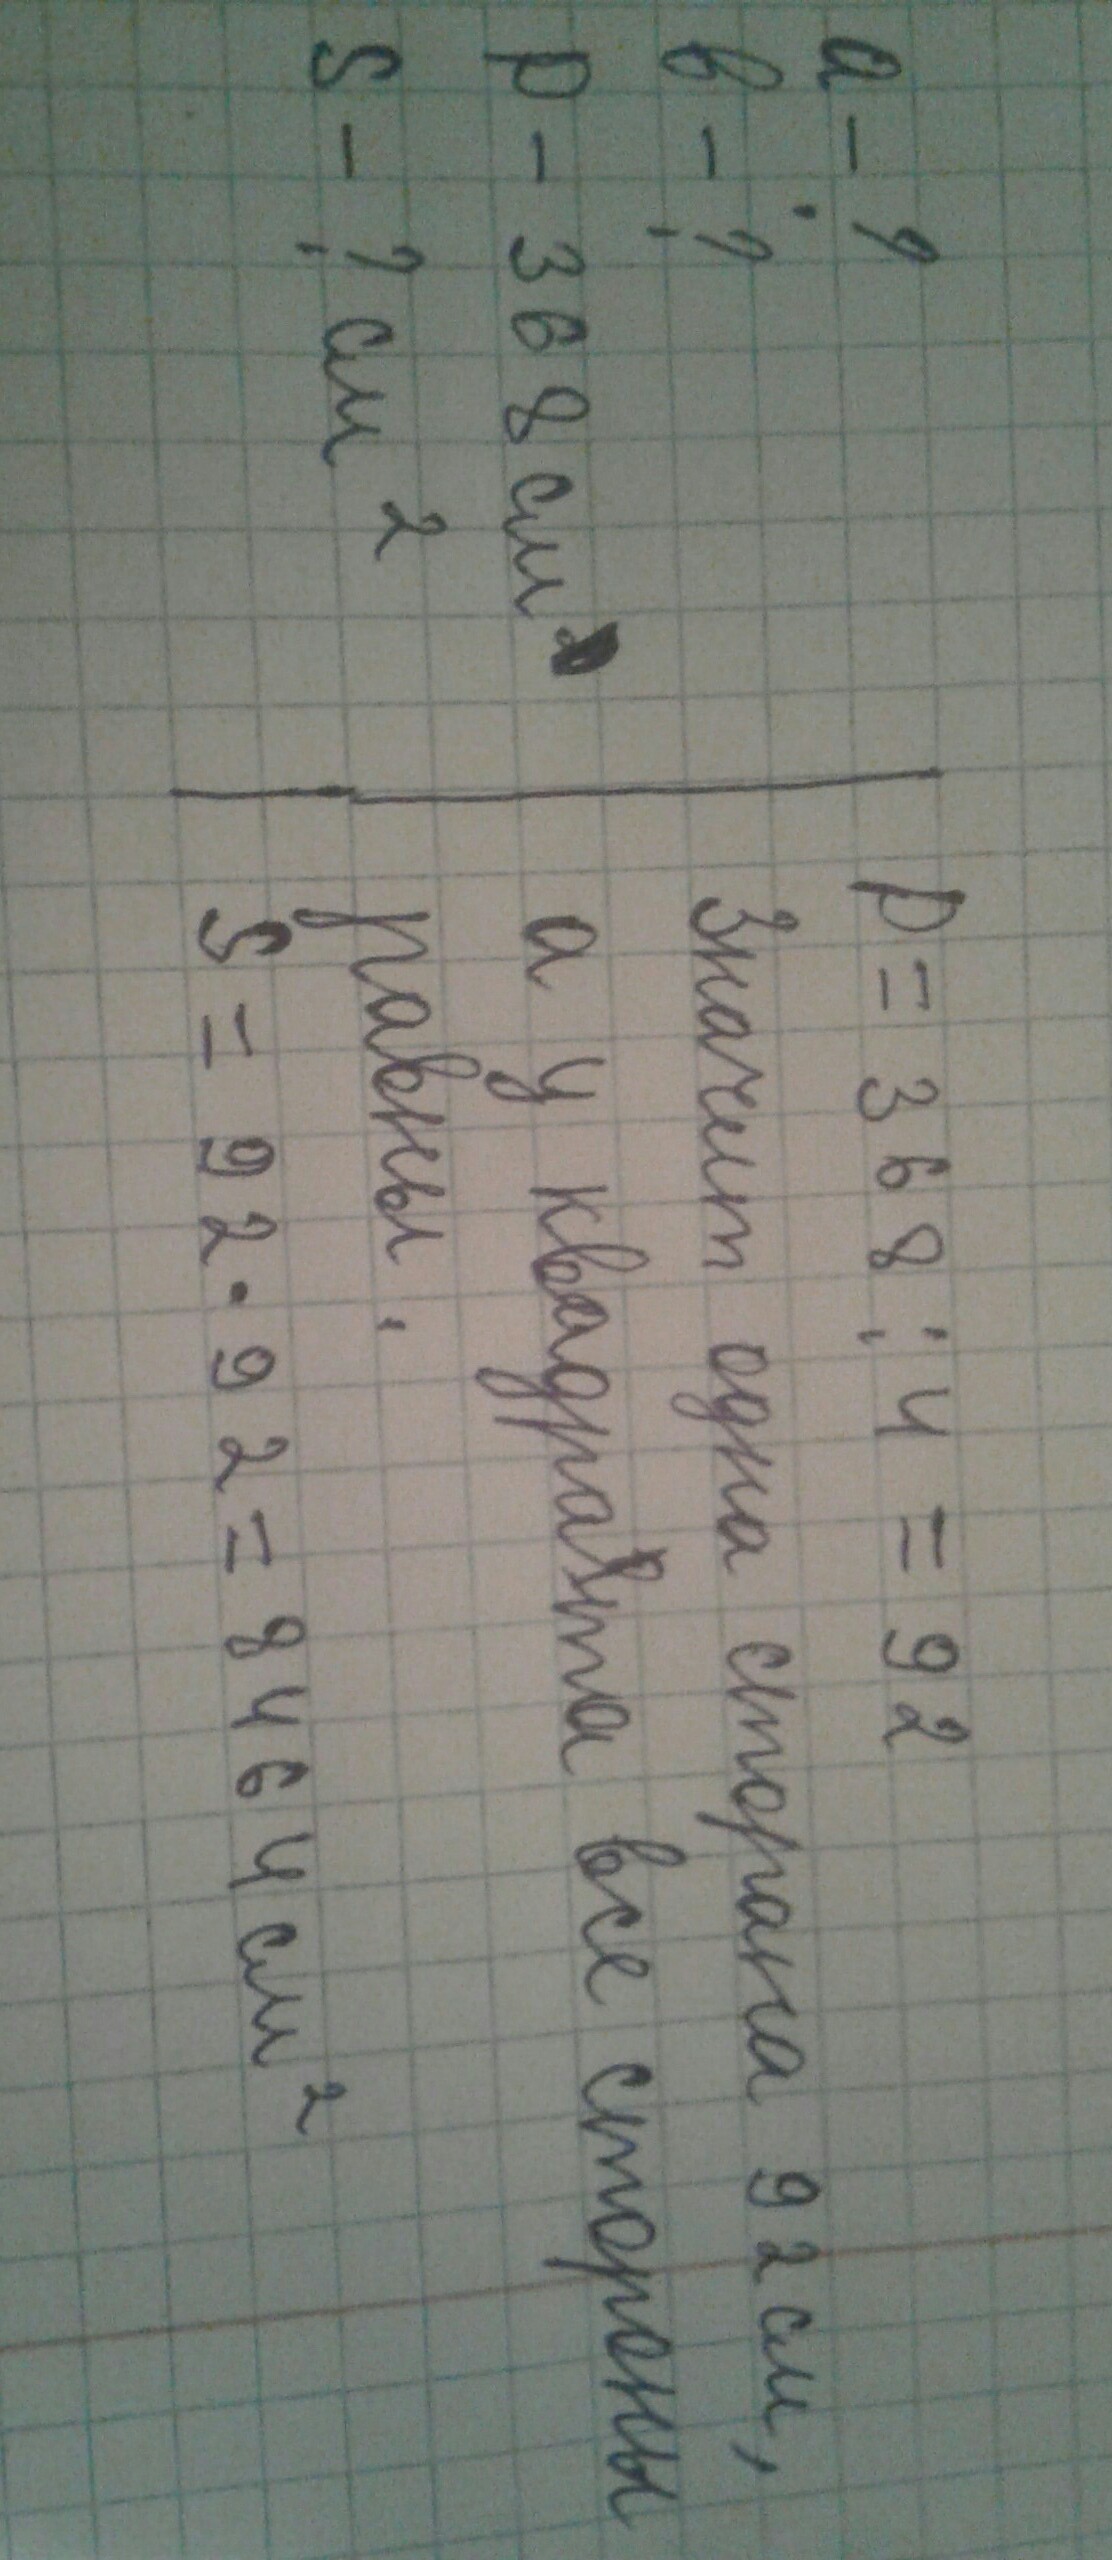 а - ?
в - ?
Р - 368 см
S - ? см²
Р = 368 : 4 = 92
Значит одна сторана 92 см,
а у квадрата все стороны
равны.
S = 92 · 92 = 8464 см²